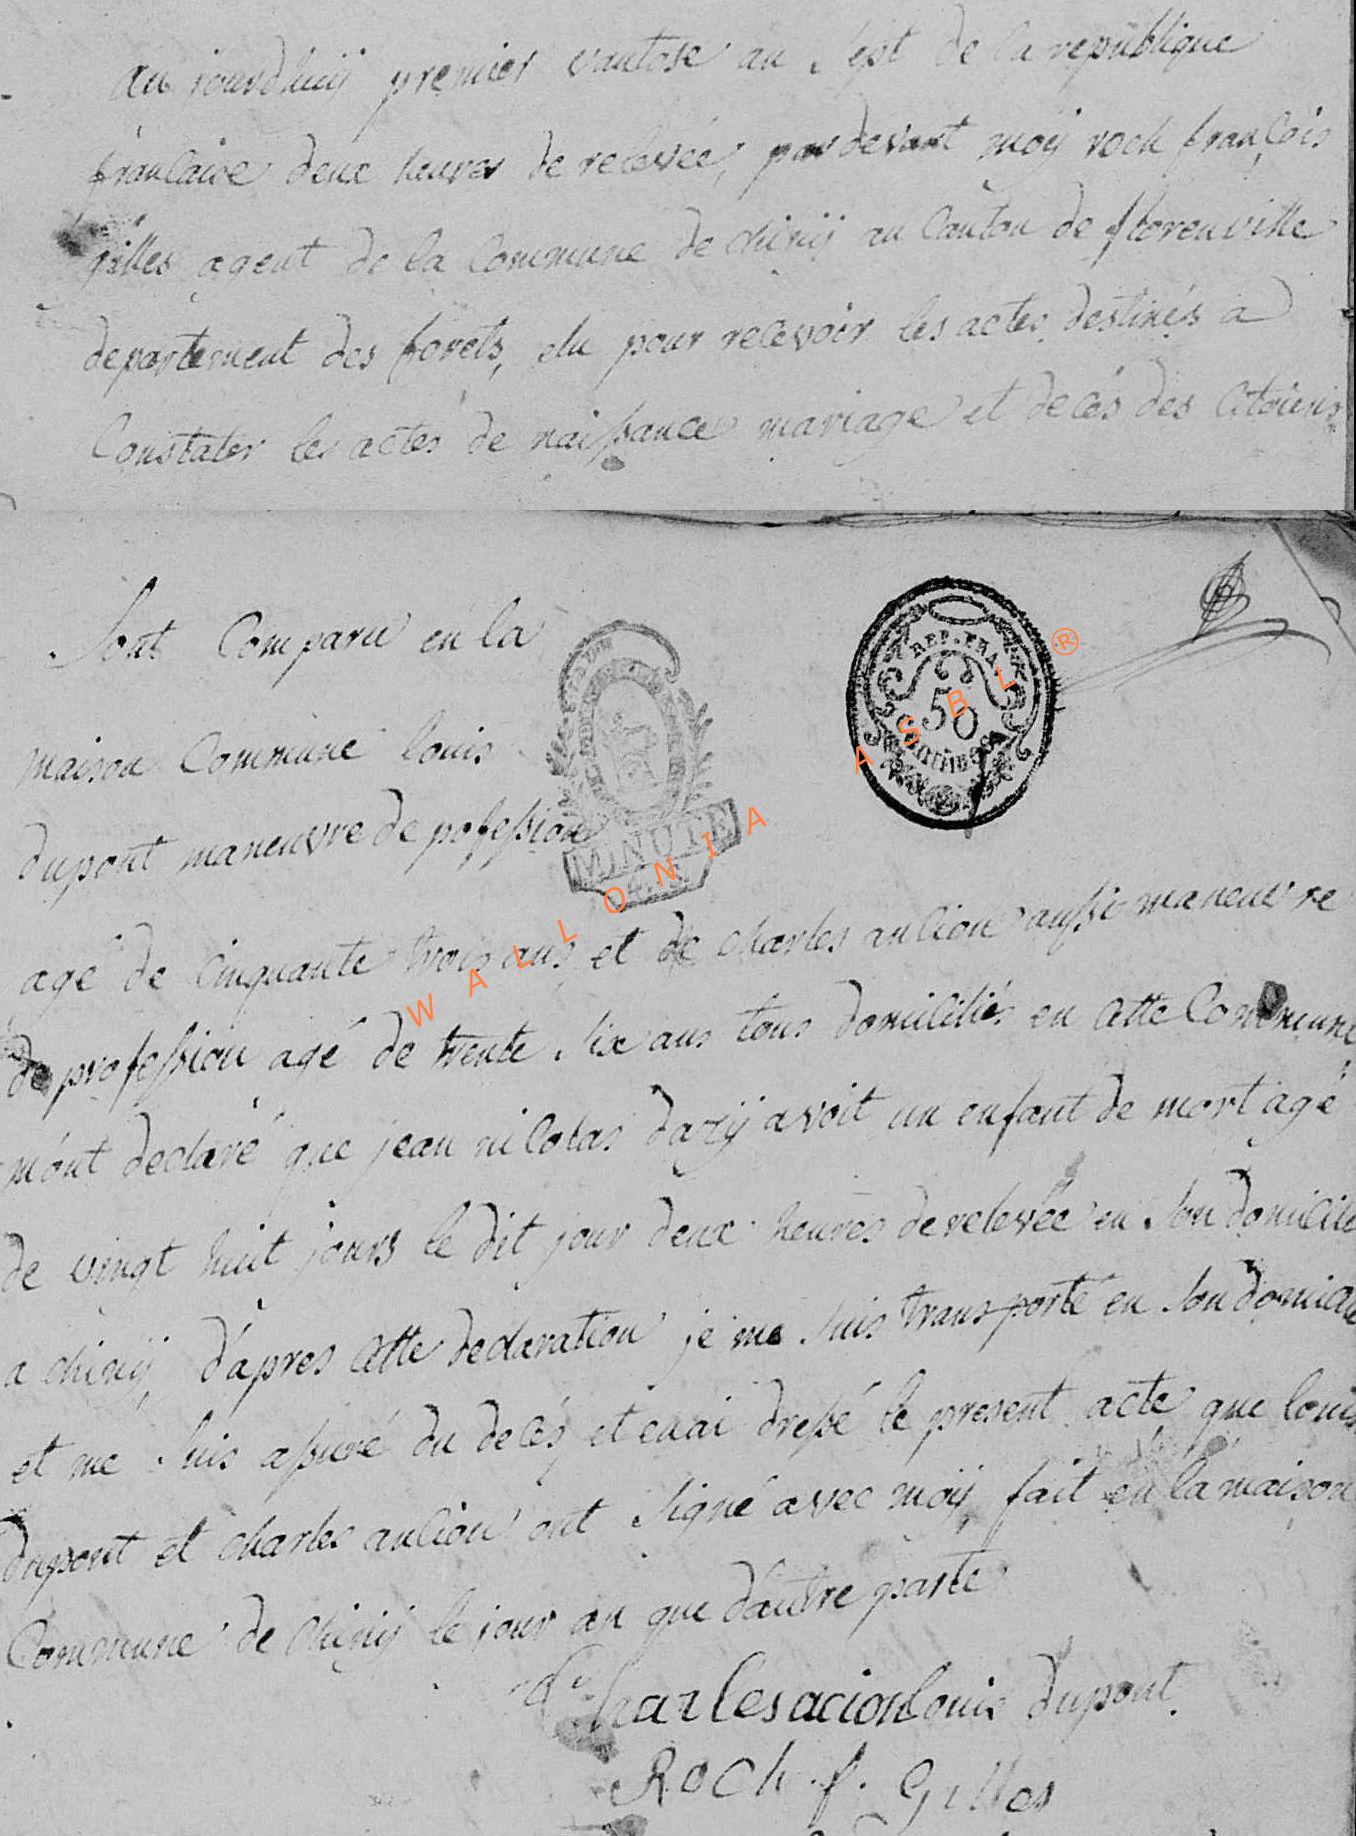 au jourdhuij premier vantose an sept de la republique
francaise deux heures de relevée, pardevant moij roch françois
gilles agent de la commune de chinij au canton de florenville
departement des forets, elu pour recevoir les actes destinés a
constater les actes de naissance mariage et decés des citoiens
sont comparu en la
maison commune louis
dupont maneuvre de pofession
agé de cinquante trois ans et de charles aulion aussi maneuvre
de profession agé de trente six ans tous domiciliés en cette commune
m'ont declaré que jean nicolas dazij avoit un enfant de mort agé
de vingt huit jours le dit jour deux heures de relevée en son domicile
a chinij, d'apres cette declaration je me suis transporté en son domicile
et me suis assuré du decés et en ai dressé le present acte que louis
dupont et charles aulion ont signé avec moij fait en la maison
commune de chinij le jour an que d'autre parte
Charles acion louis dupont.
Roch . f . Gilles
REP. FRA
50
CENTIMES
MINUTE
WALLONIA ASBL ®